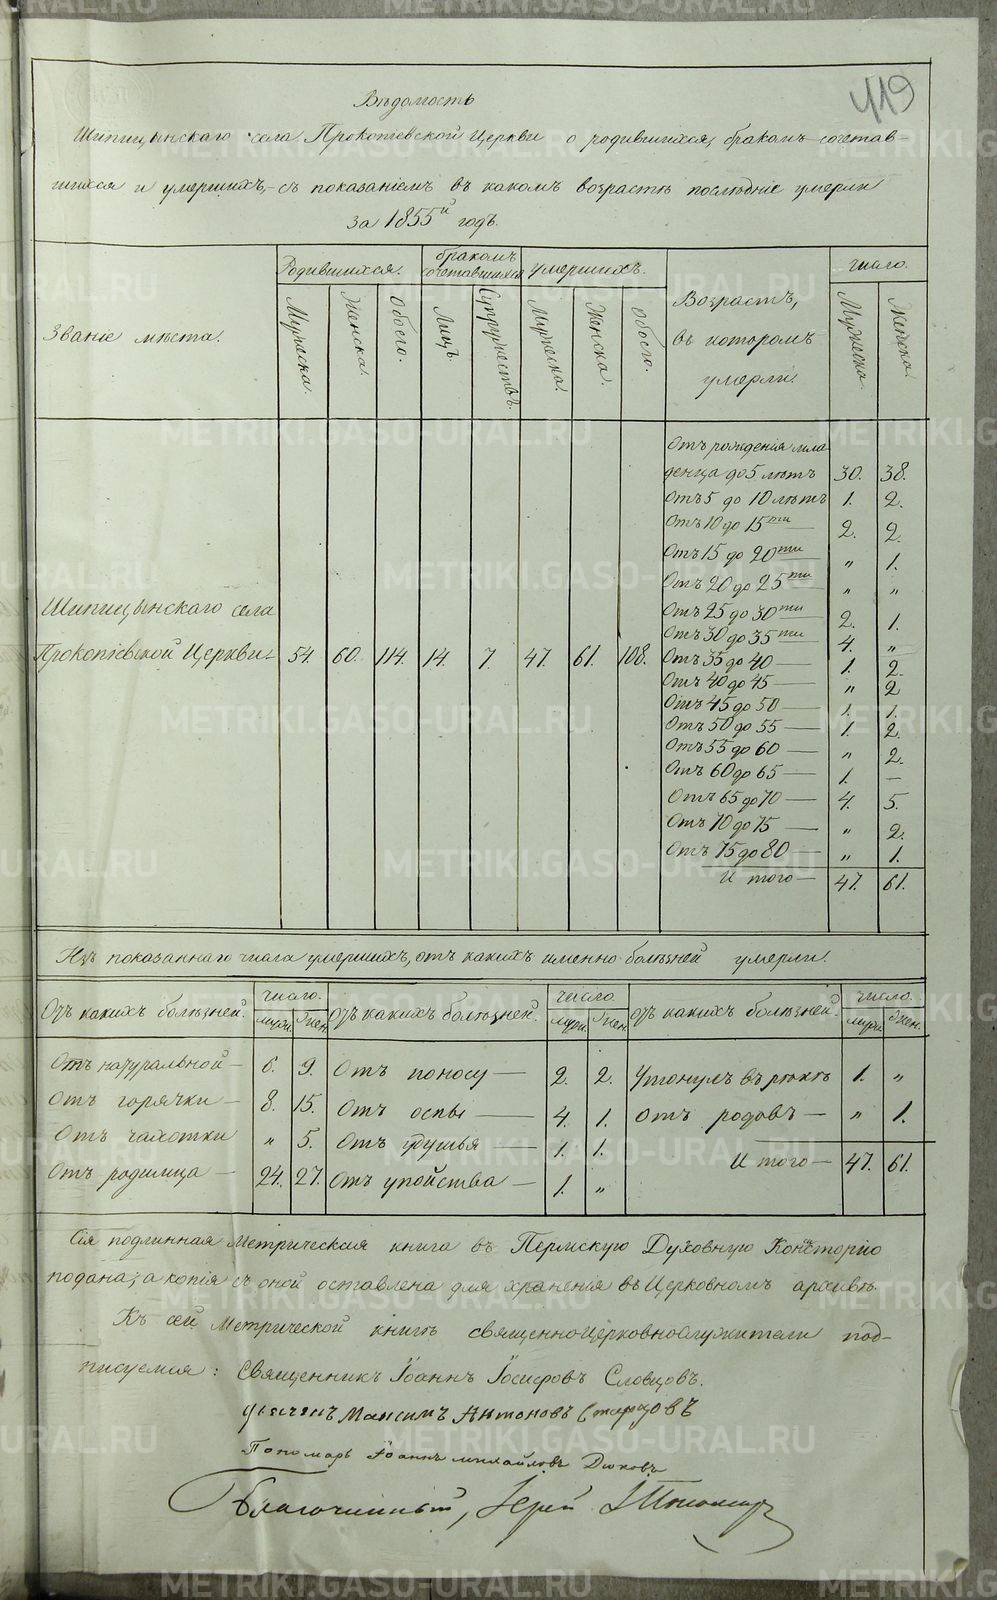 119
Вѣдомость
Шипицынскаго села Прокопіевской Церкви о родившихся, бракомъ сочетав
шихся и умершихъ, съ показаніемъ въ какомъ возрастѣ послѣдніе умерли
за 1855й годъ.
Званіе мѣста.
Родившихся.
бракомъ сочетавшихся
умершихъ.
Возрастъ, въ которомъ умерли.
число.
Мужеска.
Женска.
обоего.
Лицъ.
Супружествъ.
Мужеска.
Женска.
обоего.
Мужеска.
Женска.
Шипицынскаго села
Прокопіевской Церкви 54. 60. 114. 14. 7. 47. 61. 108.
Отъ рожденія мла
денца до 5 лѣтъ 30. 38.
Отъ 5 до 10 лѣтъ 1. 2.
Отъ 10 до 15ти — 2. 2.
Отъ 15 до 20ти — „ 1.
Отъ 20 до 25ти — „ „
Отъ 25 до 30ти — 2. 1.
Отъ 30 до 35ти — 4. „
Отъ 35 до 40 — 1. 2.
Отъ 40 до 45 — „ 2
Отъ 45 до 50 — 1. 1.
Отъ 50 до 55 — 1. 2.
Отъ 55 до 60 — „ 2.
Отъ 60 до 65 — 1. —
Отъ 65 до 70 — 4. 5.
Отъ 70 до 75 — „ 2.
Отъ 75 до 80 — „ 1.
И того — 47. 61.
Изъ показаннаго числа умершихъ, отъ какихъ именно болѣзней умерли.
Отъ какихъ болѣзней. число. муж. жен. Отъ какихъ болѣзней. число. муж. жен. Отъ какихъ болѣзней. число. муж. жен.
Отъ натуральной — 6. 9. Отъ поносу — 2. 2. Утонулъ въ рѣкѣ 1. „
Отъ горячки — 8. 15. Отъ оспы — 4. 1. Отъ родовъ — „ 1.
Отъ чахотки „ 5. Отъ удушья — 1. 1. И того — 47. 61.
Отъ родимца — 24. 27. Отъ упойства — 1. „
Сія подлинная Метрическая книга въ Пермскую Духовную Консторію
подана; а копія съ оной оставлена для храненія въ Церковномъ архивѣ.
Къ сей Метрической книгѣ священноцерковнослужители под-
писуемся: Священникъ Іоаннъ Іосифовъ Словцовъ.
дьячекъ Максимъ Антоновъ Старцовъ
Пономарь Іоаннъ Михайловъ Дюковъ
Благочинный, Іерей
METRIKI.GASO-URAL.RU